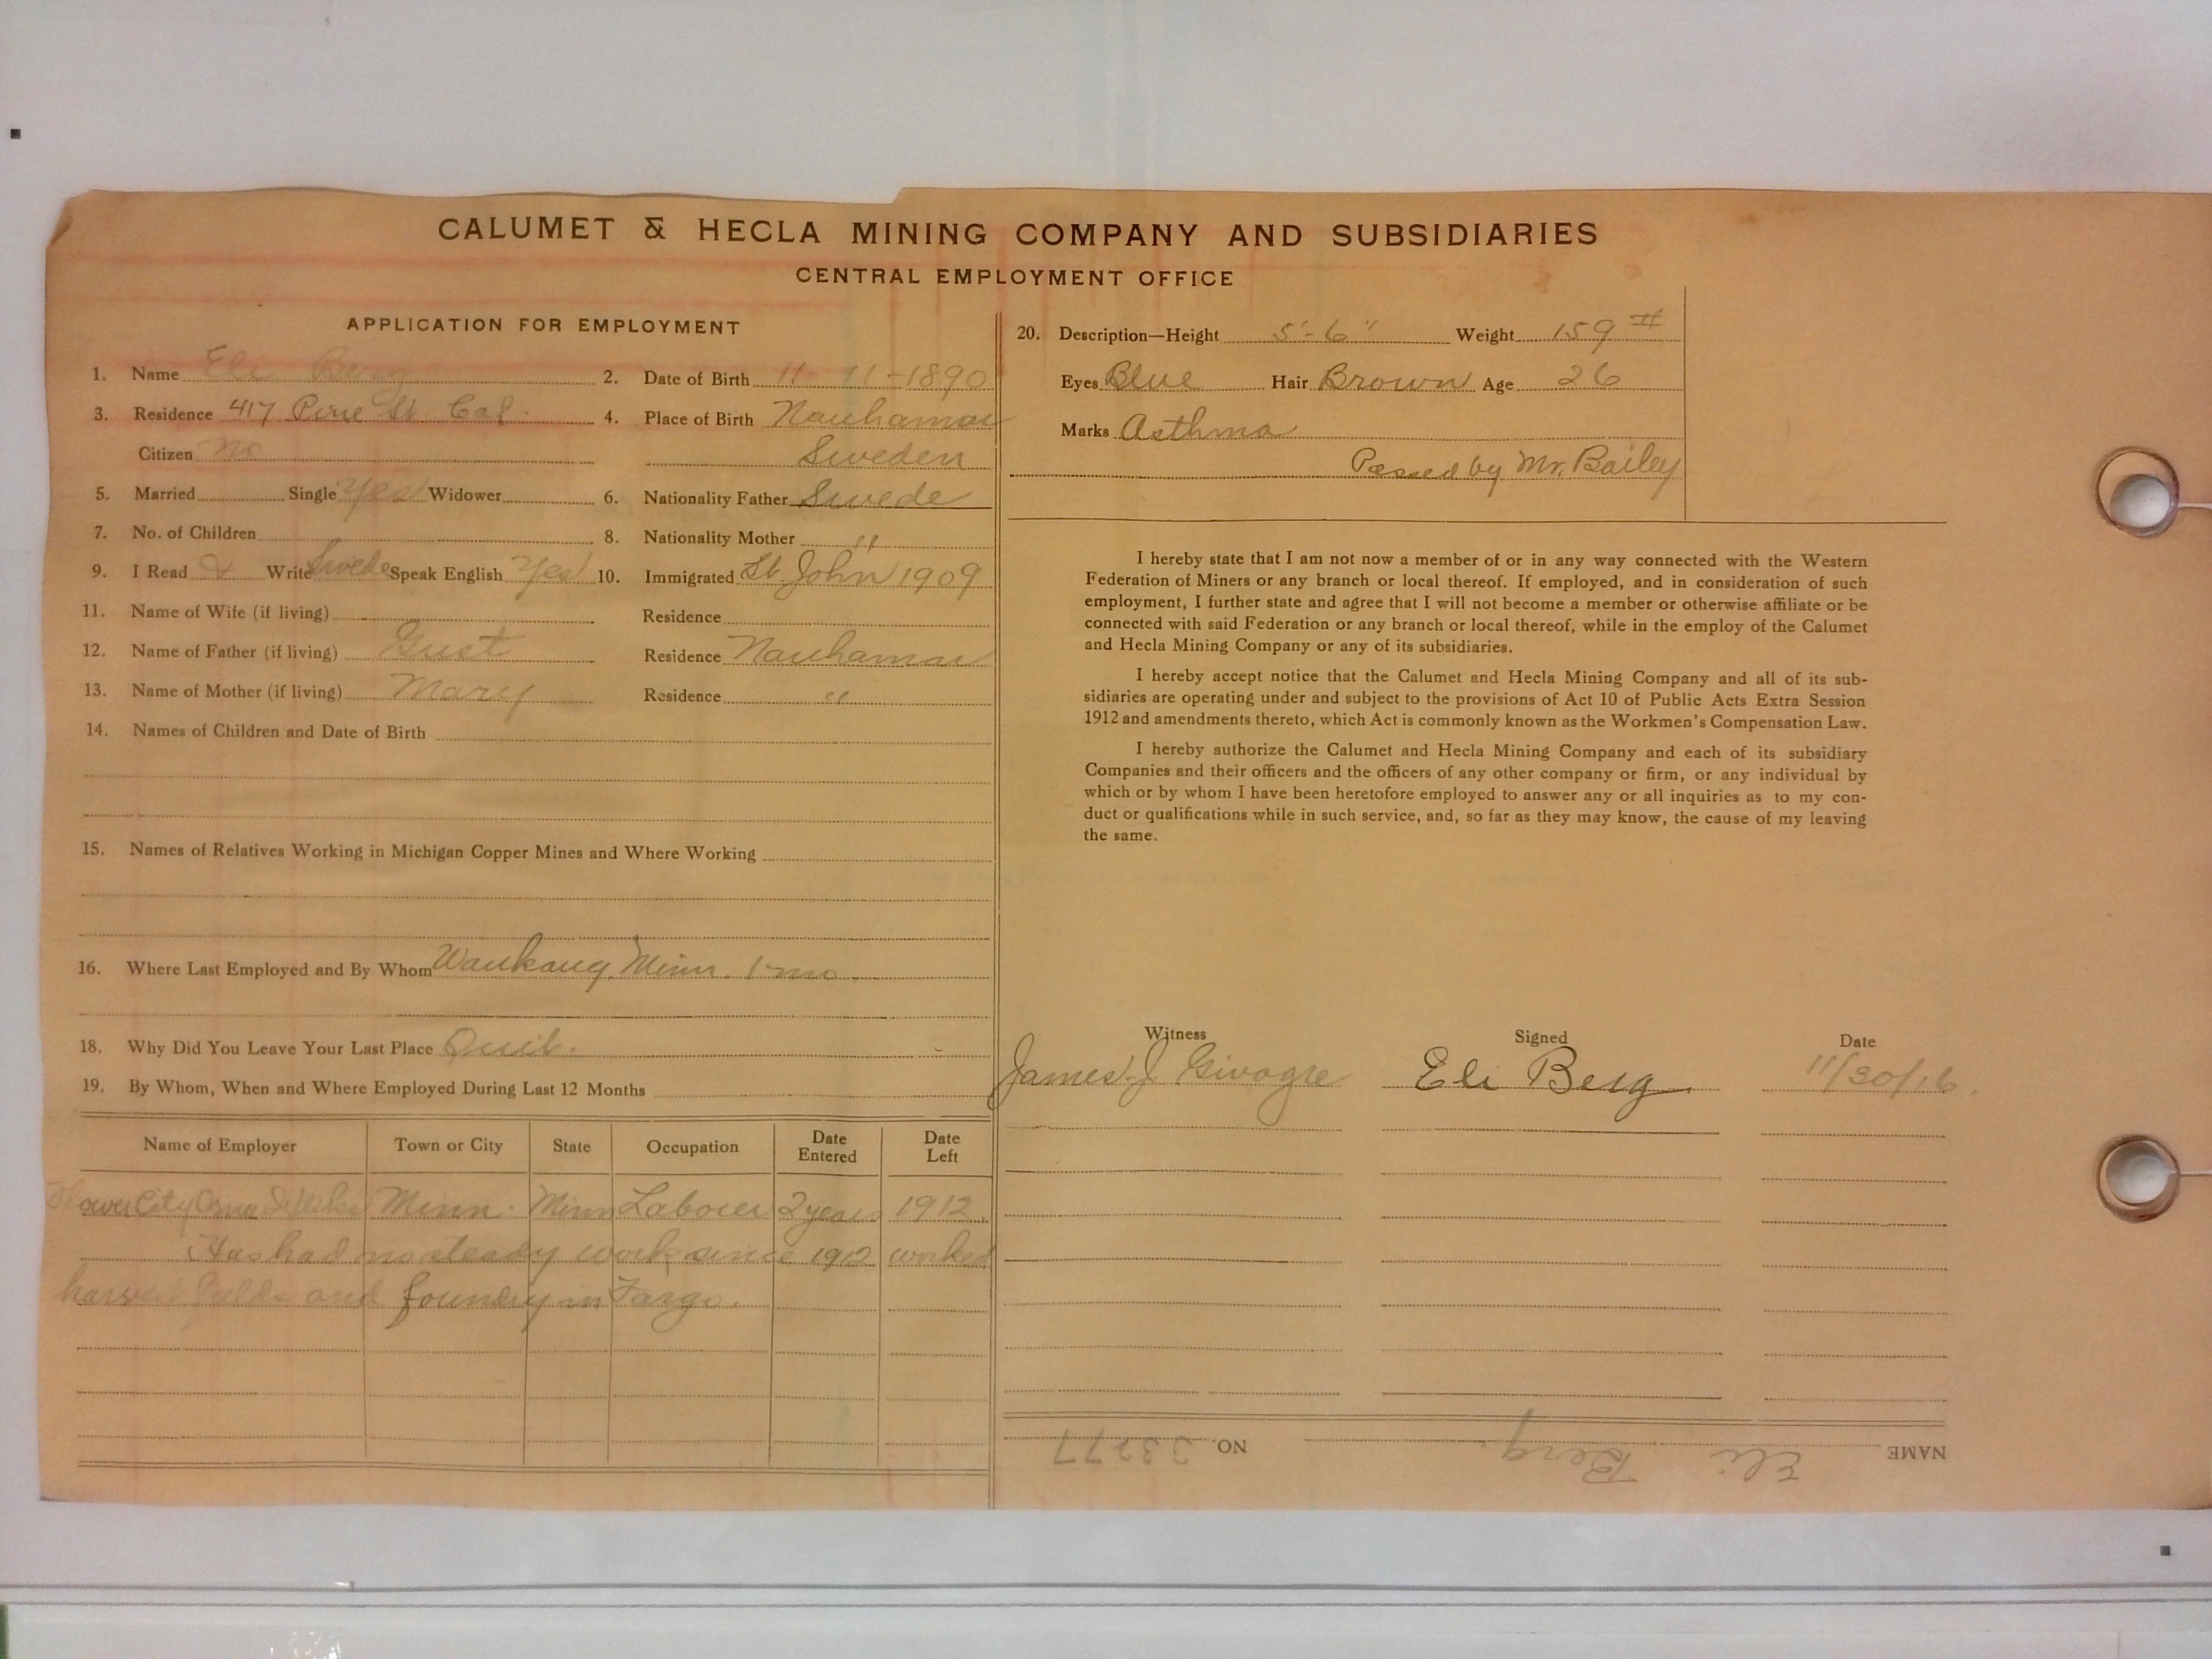 CALUMET & HECLA MINING COMPANY AND SUBSIDIARIES
CENTRAL EMPLOYMENT OFFICE
APPLICATION FOR EMPLOYMENT
1. Name Eli Berg 2. Date of Birth 11-11-1890
3. Residence 417 Pine St. Cal. 4. Place of Birth
Citizen No Sweden
5. Married Single Yes Widower 6. Nationality Father Swede
7. No. of Children 8. Nationality Mother "
9. I Read & Write Swede Speak English Yes 10. Immigrated St. John 1909
11. Name of Wife (if living) Residence
12. Name of Father (if living) Gust Residence
13. Name of Mother (if living) Mary Residence "
14. Names of Children and Date of Birth
15. Names of Relatives Working in Michigan Copper Mines and Where Working
16. Where Last Employed and By Whom Minn. 1-mo.
18. Why Did You Leave Your Last Place Quit.
19. By Whom, When and Where Employed During Last 12 Months
Name of Employer Town or City State Occupation Date Entered Date Left
City Minn. Minn Laborer 2 years 1912.
Has had no steady work since 1912 worked
harvest fields and foundry in Fargo.
20. Description—Height 5'-6" Weight 159 #
Eyes Blue Hair Brown Age 26
Marks Asthma
Passed by Mr. Bailey
I hereby state that I am not now a member of or in any way connected with the Western
Federation of Miners or any branch or local thereof. If employed, and in consideration of such
employment, I further state and agree that I will not become a member or otherwise affiliate or be
connected with said Federation or any branch or local thereof, while in the employ of the Calumet
and Hecla Mining Company or any of its subsidiaries.
I hereby accept notice that the Calumet and Hecla Mining Company and all of its sub-
sidiaries are operating under and subject to the provisions of Act 10 of Public Acts Extra Session
1912 and amendments thereto, which Act is commonly known as the Workmen's Compensation Law.
I hereby authorize the Calumet and Hecla Mining Company and each of its subsidiary
Companies and their officers and the officers of any other company or firm, or any individual by
which or by whom I have been heretofore employed to answer any or all inquiries as to my con-
duct or qualifications while in such service, and, so far as they may know, the cause of my leaving
the same.
Witness Signed Date
James J Eli Berg 11/30/16
NAME Eli Berg. NO. 33277